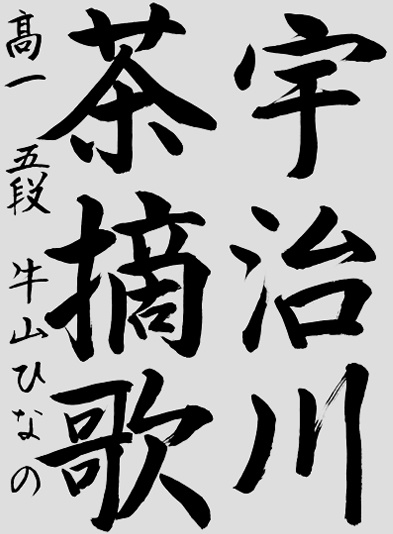 宇治川
茶摘歌
高一 五段 牛山ひなの